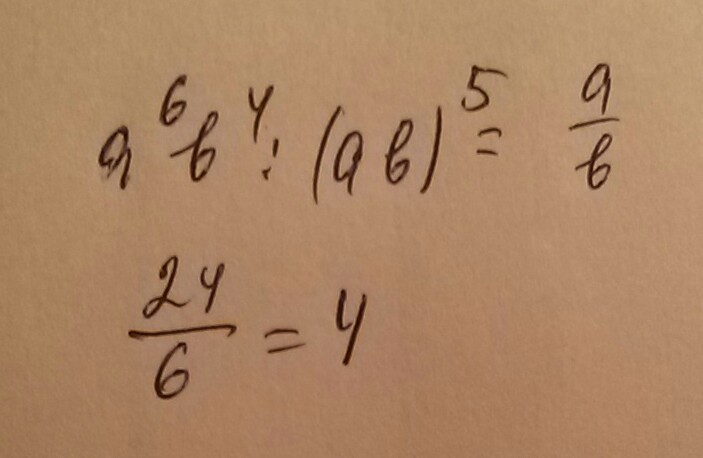 a⁶b⁴ : (ab)⁵ = a/b
24/6 = 4